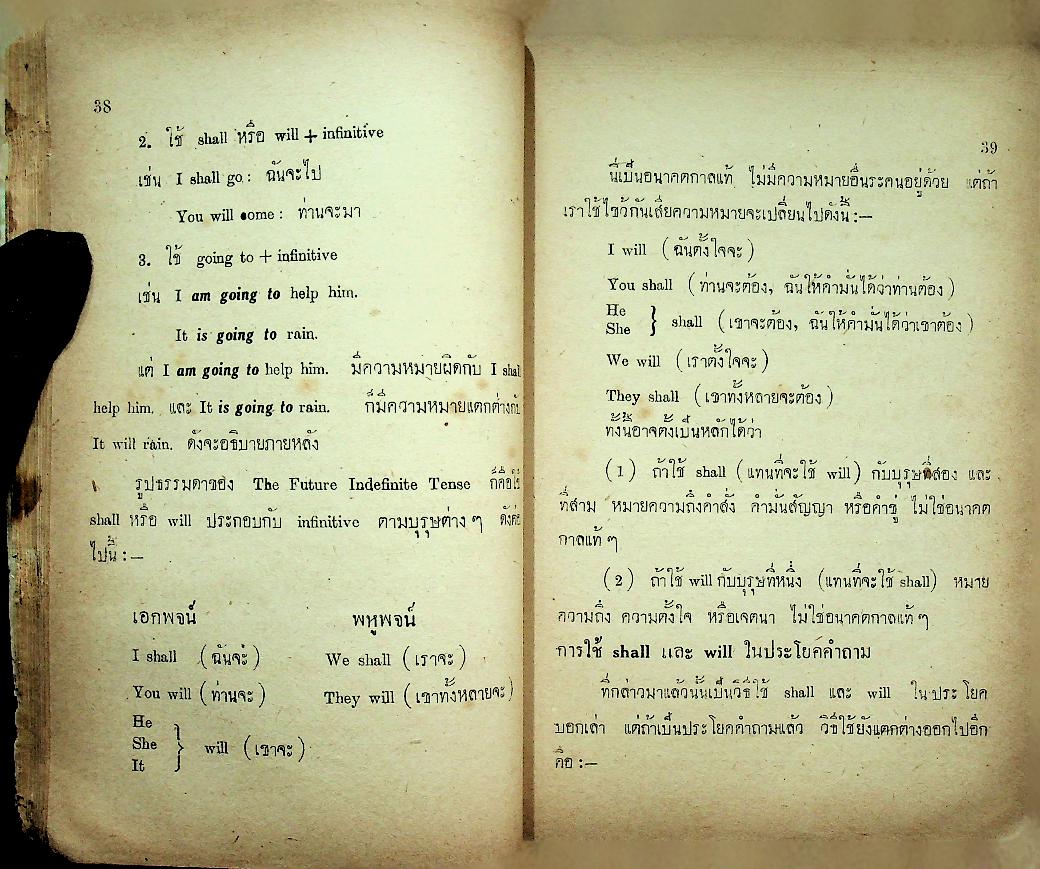 38
2. ใช้ shall หรือ will + infinitive
เช่น I shall go : ฉันจะไป
You will come : ท่านจะมา
3. ใช้ going to + infinitive
เช่น I am going to help him.
It is going to rain.
แต่ I am going to help him. มีความหมายผิดกับ I shall
help him. และ It is going to rain. ก็มีความหมายแตกต่างกับ
It will rain. ดังจะอธิบายภายหลัง
รูปธรรมดาของ The Future Indefinite Tense ก็คือใช้
shall หรือ will ประกอบกับ infinitive ตามบุรุษต่าง ๆ ดังต่อ
ไปนี้ :—
เอกพจน์ พหูพจน์
I shall (ฉันจะ) We shall (เราจะ)
You will (ท่านจะ) They will (เขาทั้งหลายจะ)
He
She } will (เขาจะ)
It
39
นี่เป็นอนาคตกาลแท้ ไม่มีความหมายอื่นระคนอยู่ด้วย แต่ถ้า
เราใช้ไขว้กันเสียความหมายจะเปลี่ยนไปดังนี้ :—
I will (ฉันตั้งใจจะ)
You shall (ท่านจะต้อง, ฉันให้คำมั่นได้ว่าท่านต้อง)
He
She } shall (เขาจะต้อง, ฉันให้คำมั่นได้ว่าเขาต้อง)
We will (เราตั้งใจจะ)
They shall (เขาทั้งหลายจะต้อง)
ทั้งนี้อาจตั้งเป็นหลักได้ว่า
(1) ถ้าใช้ shall (แทนที่จะใช้ will) กับบุรุษที่สอง และ
ที่สาม หมายความถึงคำสั่ง คำมั่นสัญญา หรือคำขู่ ไม่ใช่อนาคต
กาลแท้ ๆ
(2) ถ้าใช้ will กับบุรุษที่หนึ่ง (แทนที่จะใช้ shall) หมาย
ความถึง ความตั้งใจ หรือเจตนา ไม่ใช่อนาคตกาลแท้ ๆ
การใช้ shall และ will ในประโยคคำถาม
ที่กล่าวมาแล้วนั้นเป็นวิธีใช้ shall และ will ในประโยค
บอกเล่า แต่ถ้าเป็นประโยคคำถามแล้ว วิธีใช้ยังแตกต่างออกไปอีก
คือ :—